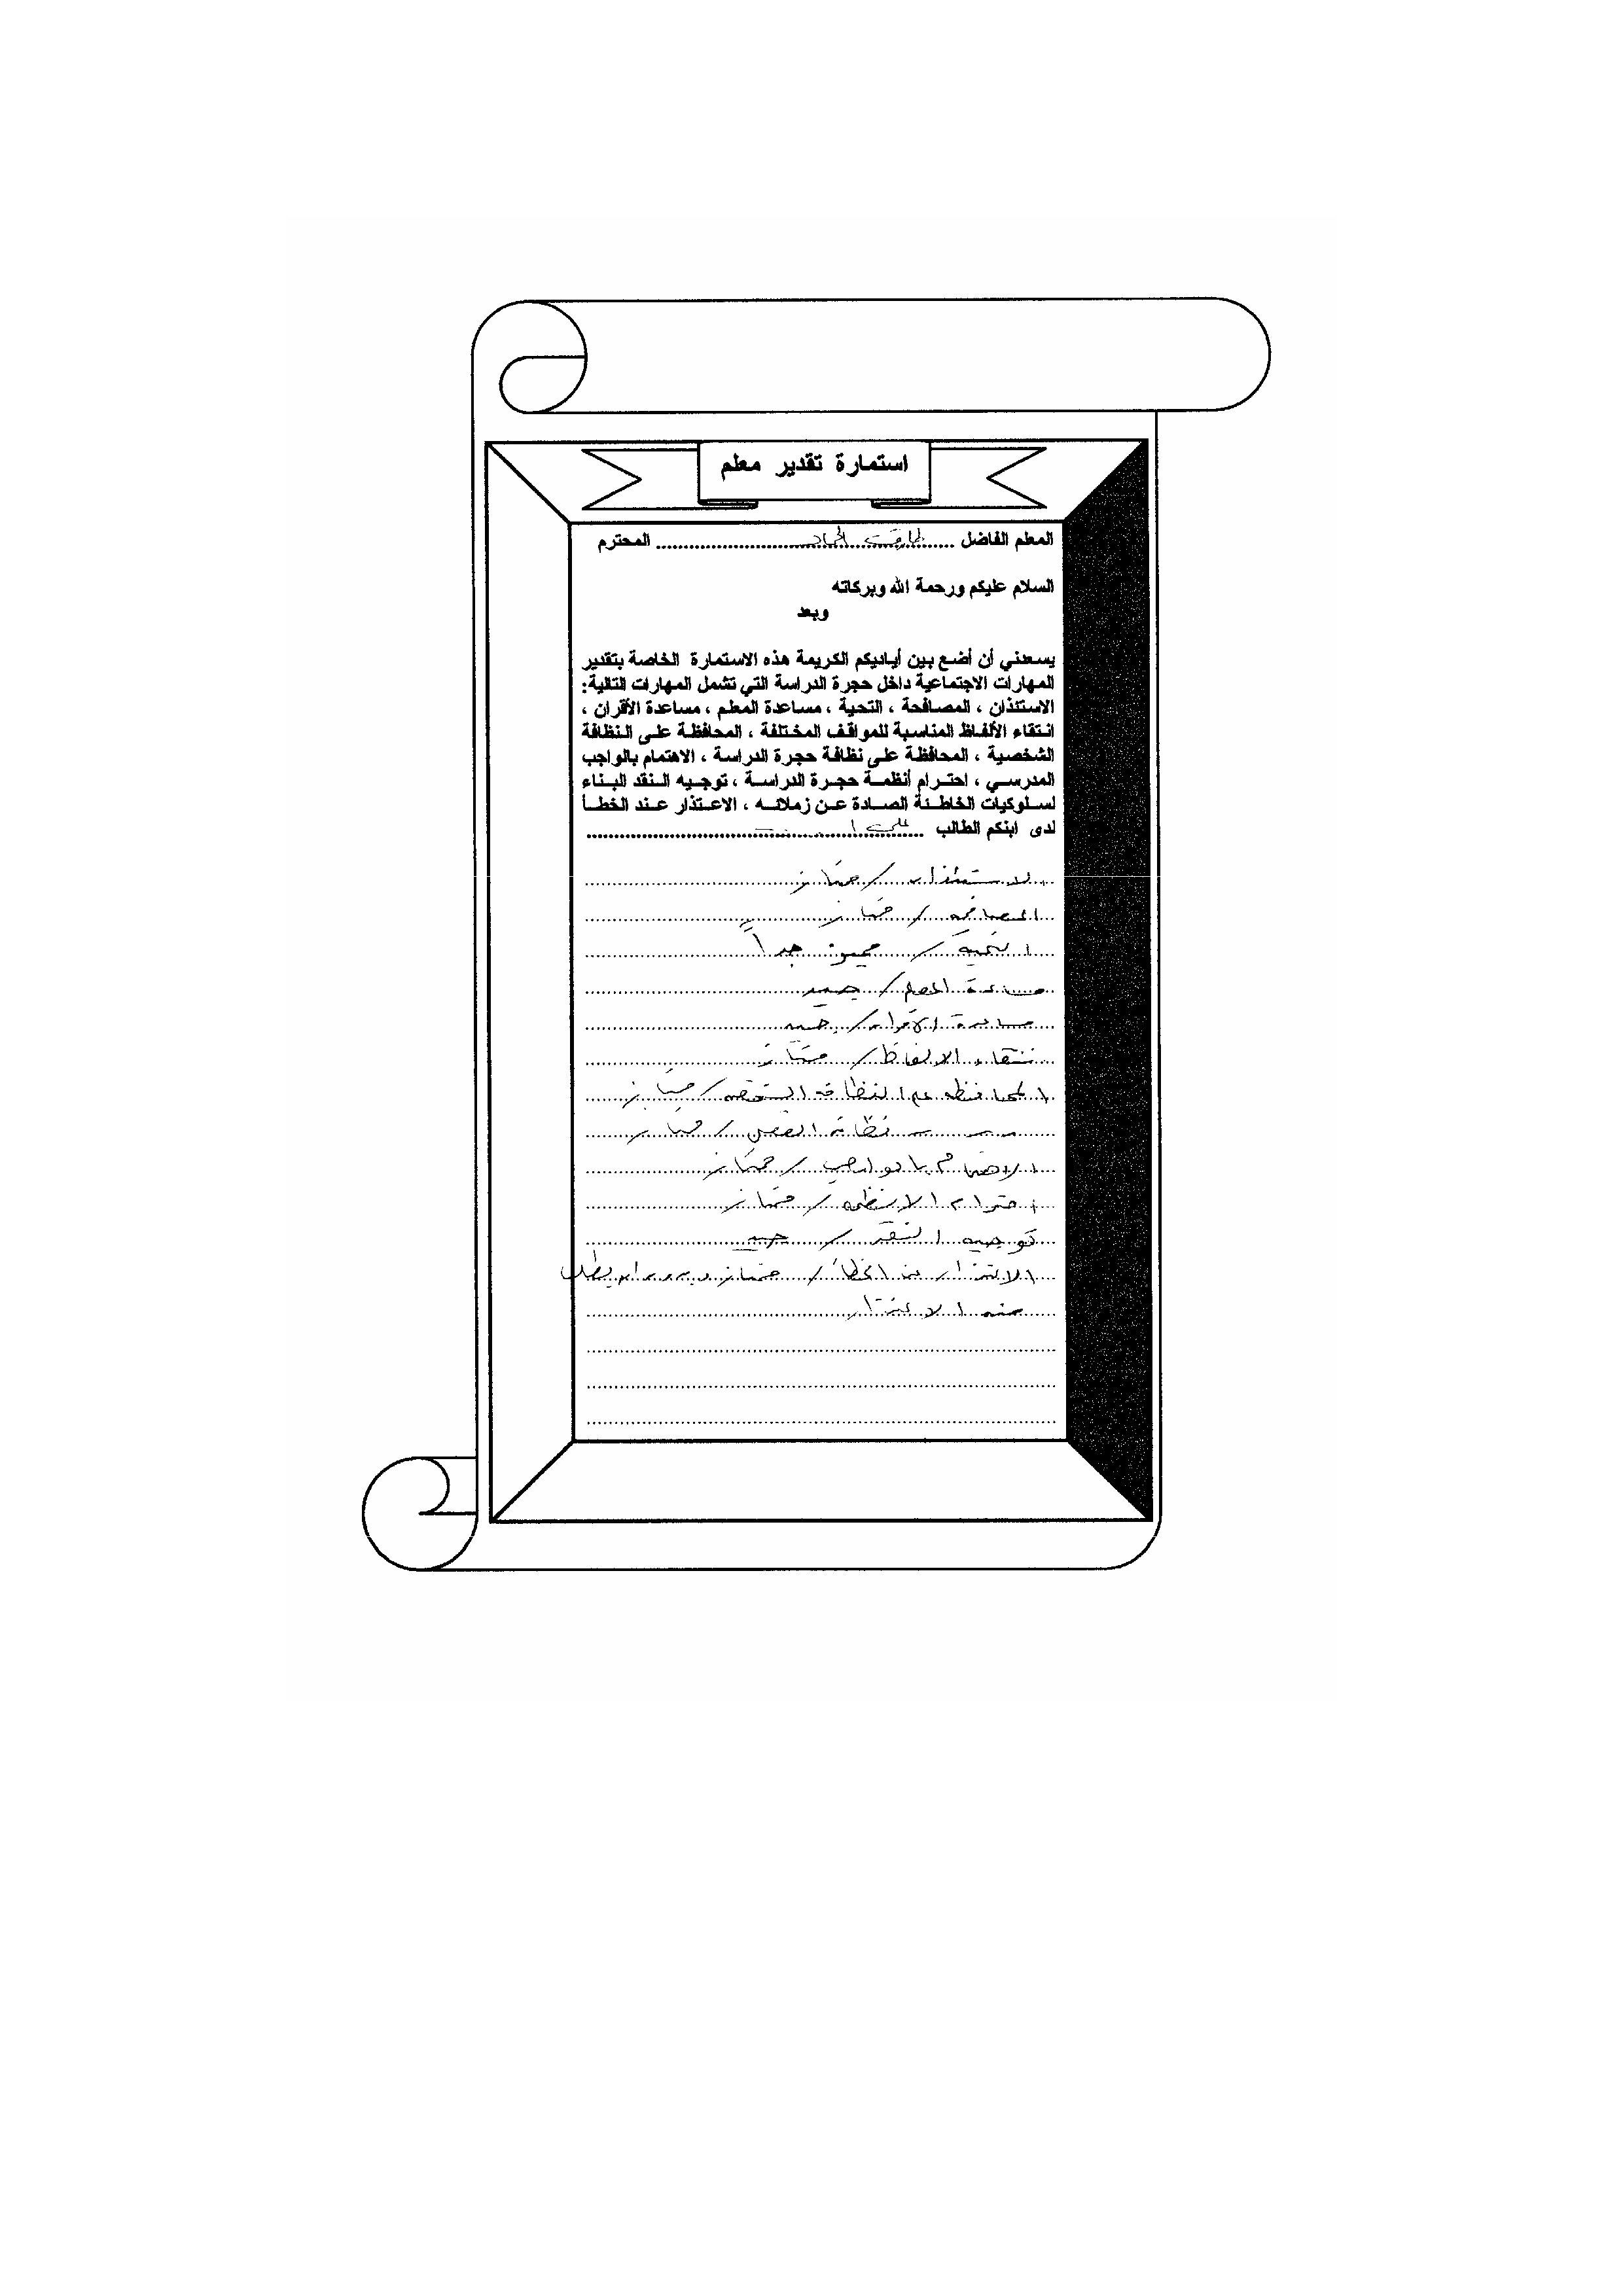 استمارة تقدير معلم
المعلم الفاضل طارق المحترم
السلام عليكم ورحمة الله وبركاته
وبعد
يسعدني أن أضع بين أياديكم الكريمة هذه الاستمارة الخاصة بتقدير
المهارات الاجتماعية داخل حجرة الدراسة التي تشمل المهارات التالية:
الاستئذان ، المصافحة ، التحية ، مساعدة المعلم ، مساعدة الأقران ،
انتقاء الألفاظ المناسبة للمواقف المختلفة ، المحافظة على النظافة
الشخصية ، المحافظة على نظافة حجرة الدراسة ، الاهتمام بالواجب
المدرسي ، احترام أنظمة حجرة الدراسة ، توجيه النقد البناء
لسلوكيات الخاطئة الصادة عن زملائه ، الاعتذار عند الخطأ
لدى ابنكم الطالب علي
الاستئذان / ممتاز
المصافحه / ممتاز
التحية / جداً
مساعدة المعلم / جيد
مساعدة الأقران / جيد
انتقاء الالفاظ / ممتاز
المحافظه على النظافة الشخصيه / ممتاز
نظافة الفصل / ممتاز
الاهتمام بالواجب / ممتاز
احترام الانظمه / ممتاز
توجيه النقد / جيد
الاعتذار عن الخطأ / ممتاز يطلب
منه الاعتذار